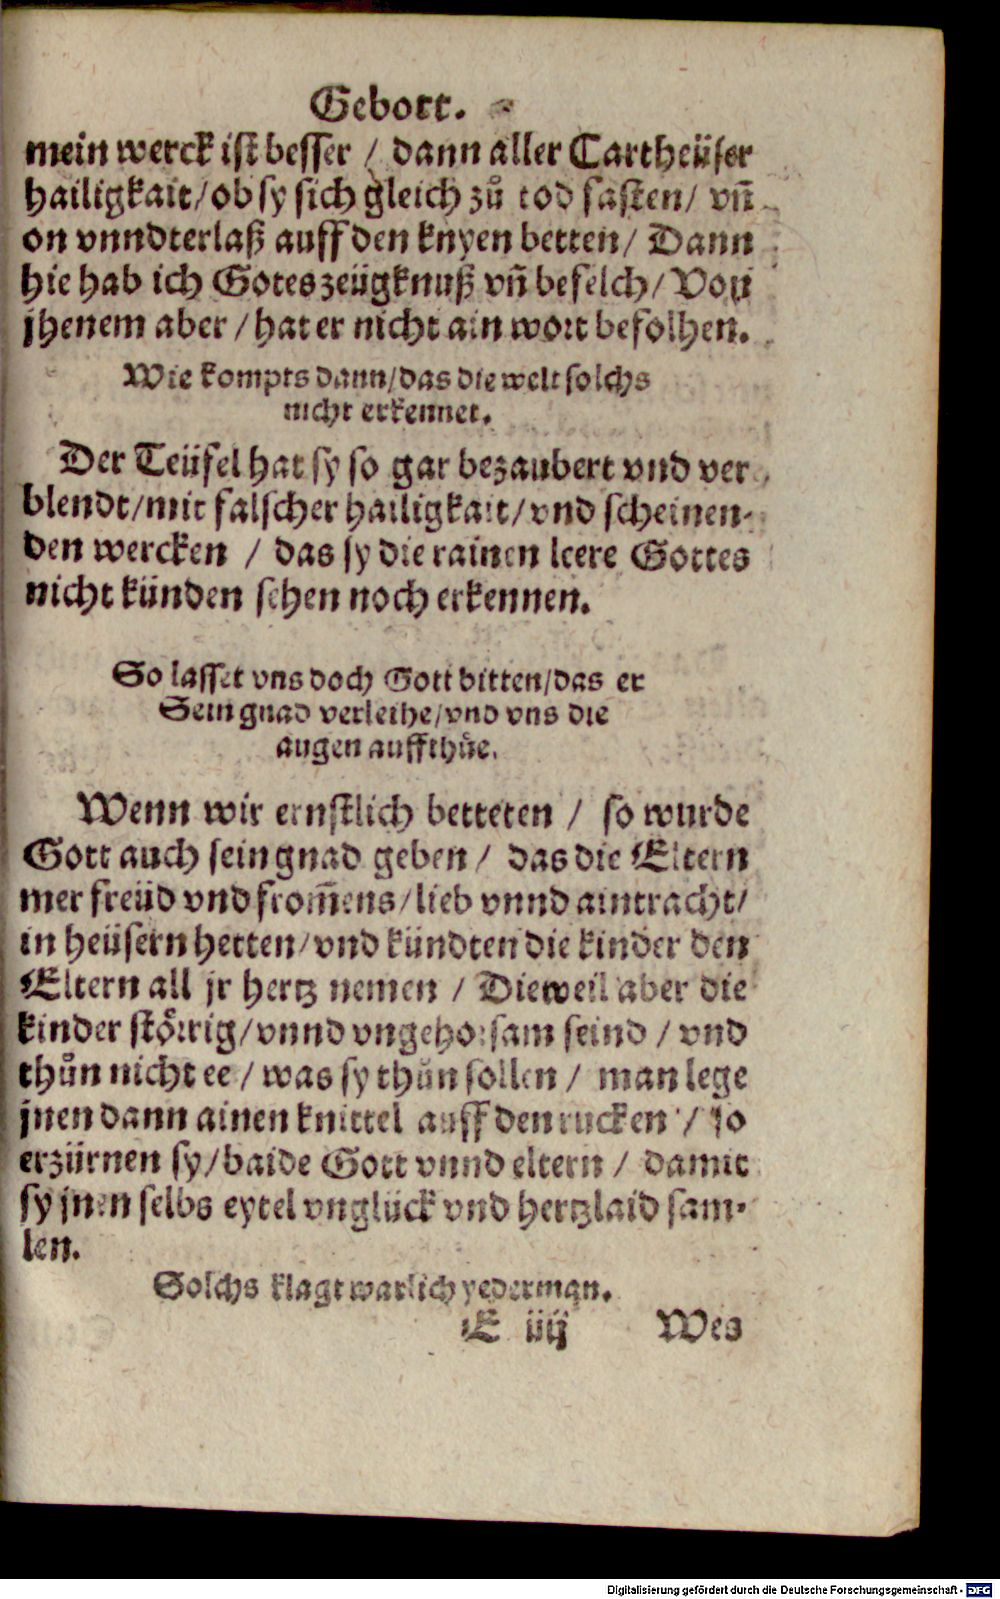 Gebott.
mein werck ist besser / dann aller Cartheüser
hailigkait/ ob sy sich gleich zů tod fasten/ vñ
on vnndterlaß auff den knyen betten/ Dann
hie hab ich Gotes zeügknuß vñ befelch/ Von
jhenem aber / hat er nicht ain wort befolhen.
Wie kompts dann/das die welt solchs
nicht erkennet.
Der Teüfel hat sy so gar bezaubert vnd ver
blendt/mit falscher hailigkait/vnd scheinen-
den wercken / das sy die rainen leere Gottes
nicht künden sehen noch erkennen.
So lasset vns doch Gott bitten/das er
Sein gnad verleihe/vnd vns die
augen auffthüe.
Wenn wir ernstlich betteten / so wurde
Gott auch sein gnad geben / das die Eltern
mer freüd vnd from̃ens/lieb vnnd aintracht/
in heüsern hetten/vnd kündten die kinder den
Eltern all jr hertz nemen / Dieweil aber die
kinder stöırrig/vnnd vngehorsam seind / vnd
thůn nicht ee / was sy thůn sollen / man lege
jnen dann ainen knittel auff den rucken / so
erzürnen sy/baide Gott vnnd eltern / damit
sy jnen selbs eytel vnglück vnd hertzlaid sam-
len.
Solchs klagt warlich yederman.
E iiij Wes
Digitalisierung gefördert durch die Deutsche Forschungsgemeinschaft - DFG